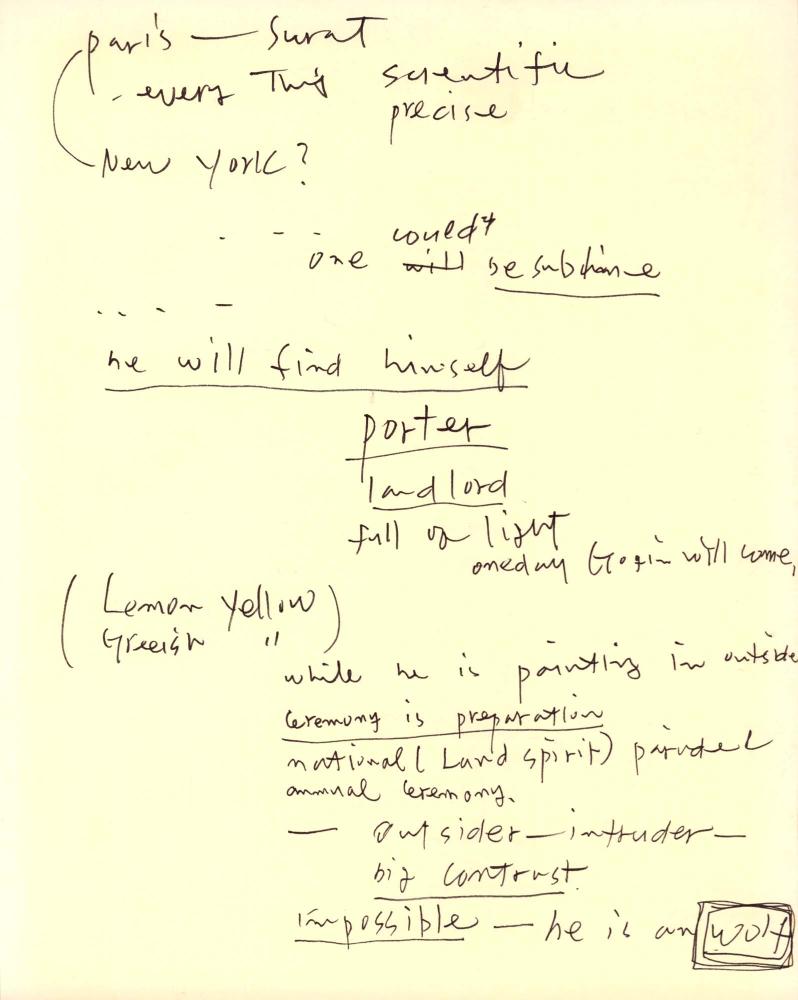 paris — Surat
- every This scientific
precise
New York?
could
one will be
he will find himself
porter
landlord
full of light
oneday will come,
(Lemon yellow)
Greeish "
while he is painting in outside
ceremony is preparation
national (Land spirit)
annual ceremony.
— outsider—intruder—
big contrast.
impossible — he is an wolf